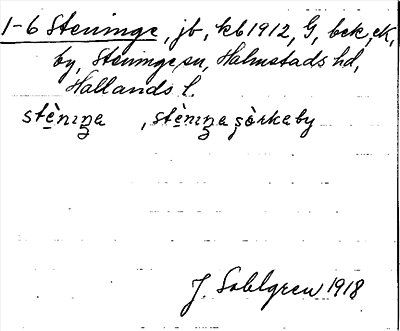 1-6 Steninge, jb, kb 1912, G, bek, ek,
by, Steninge sn, Halmstads hd,
Hallands l.
stèniŋa , stèniŋa ʂòrkeby
J. Sahlgren 1918